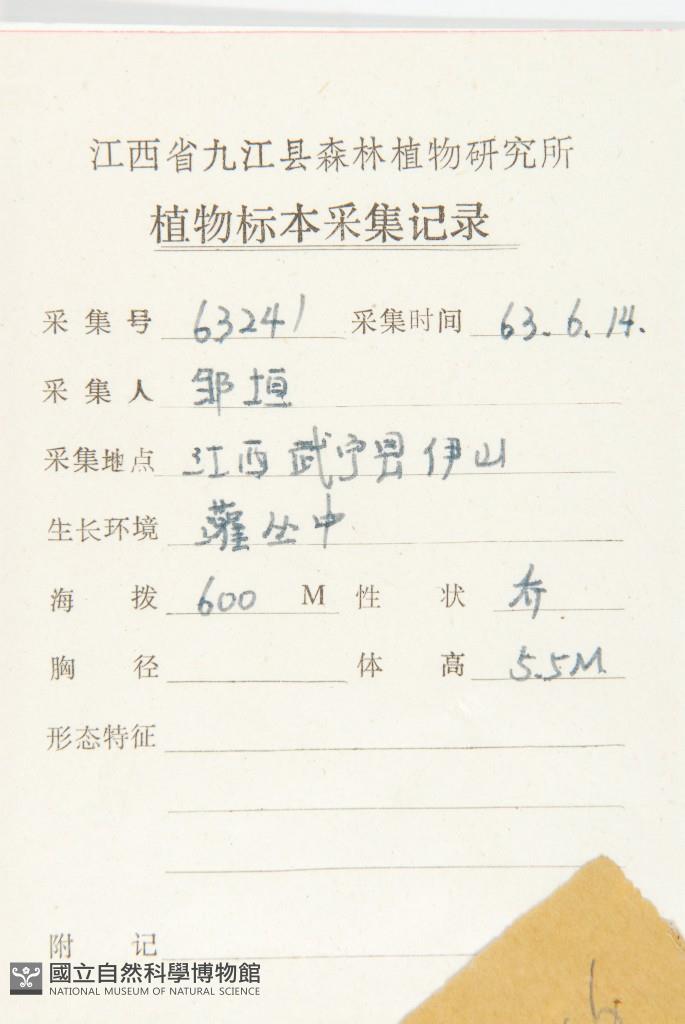 江西省九江县森林植物研究所
植物标本采集记录
采集号 63241 采集时间 63.6.14.
采集人 邹垣
采集地点 江西武宁县伊山
生长环境 灌丛中
海拨 600 M 性状 乔
胸径 体高 5.5M
形态特征
附记
國立自然科學博物館
NATIONAL MUSEUM OF NATURAL SCIENCE